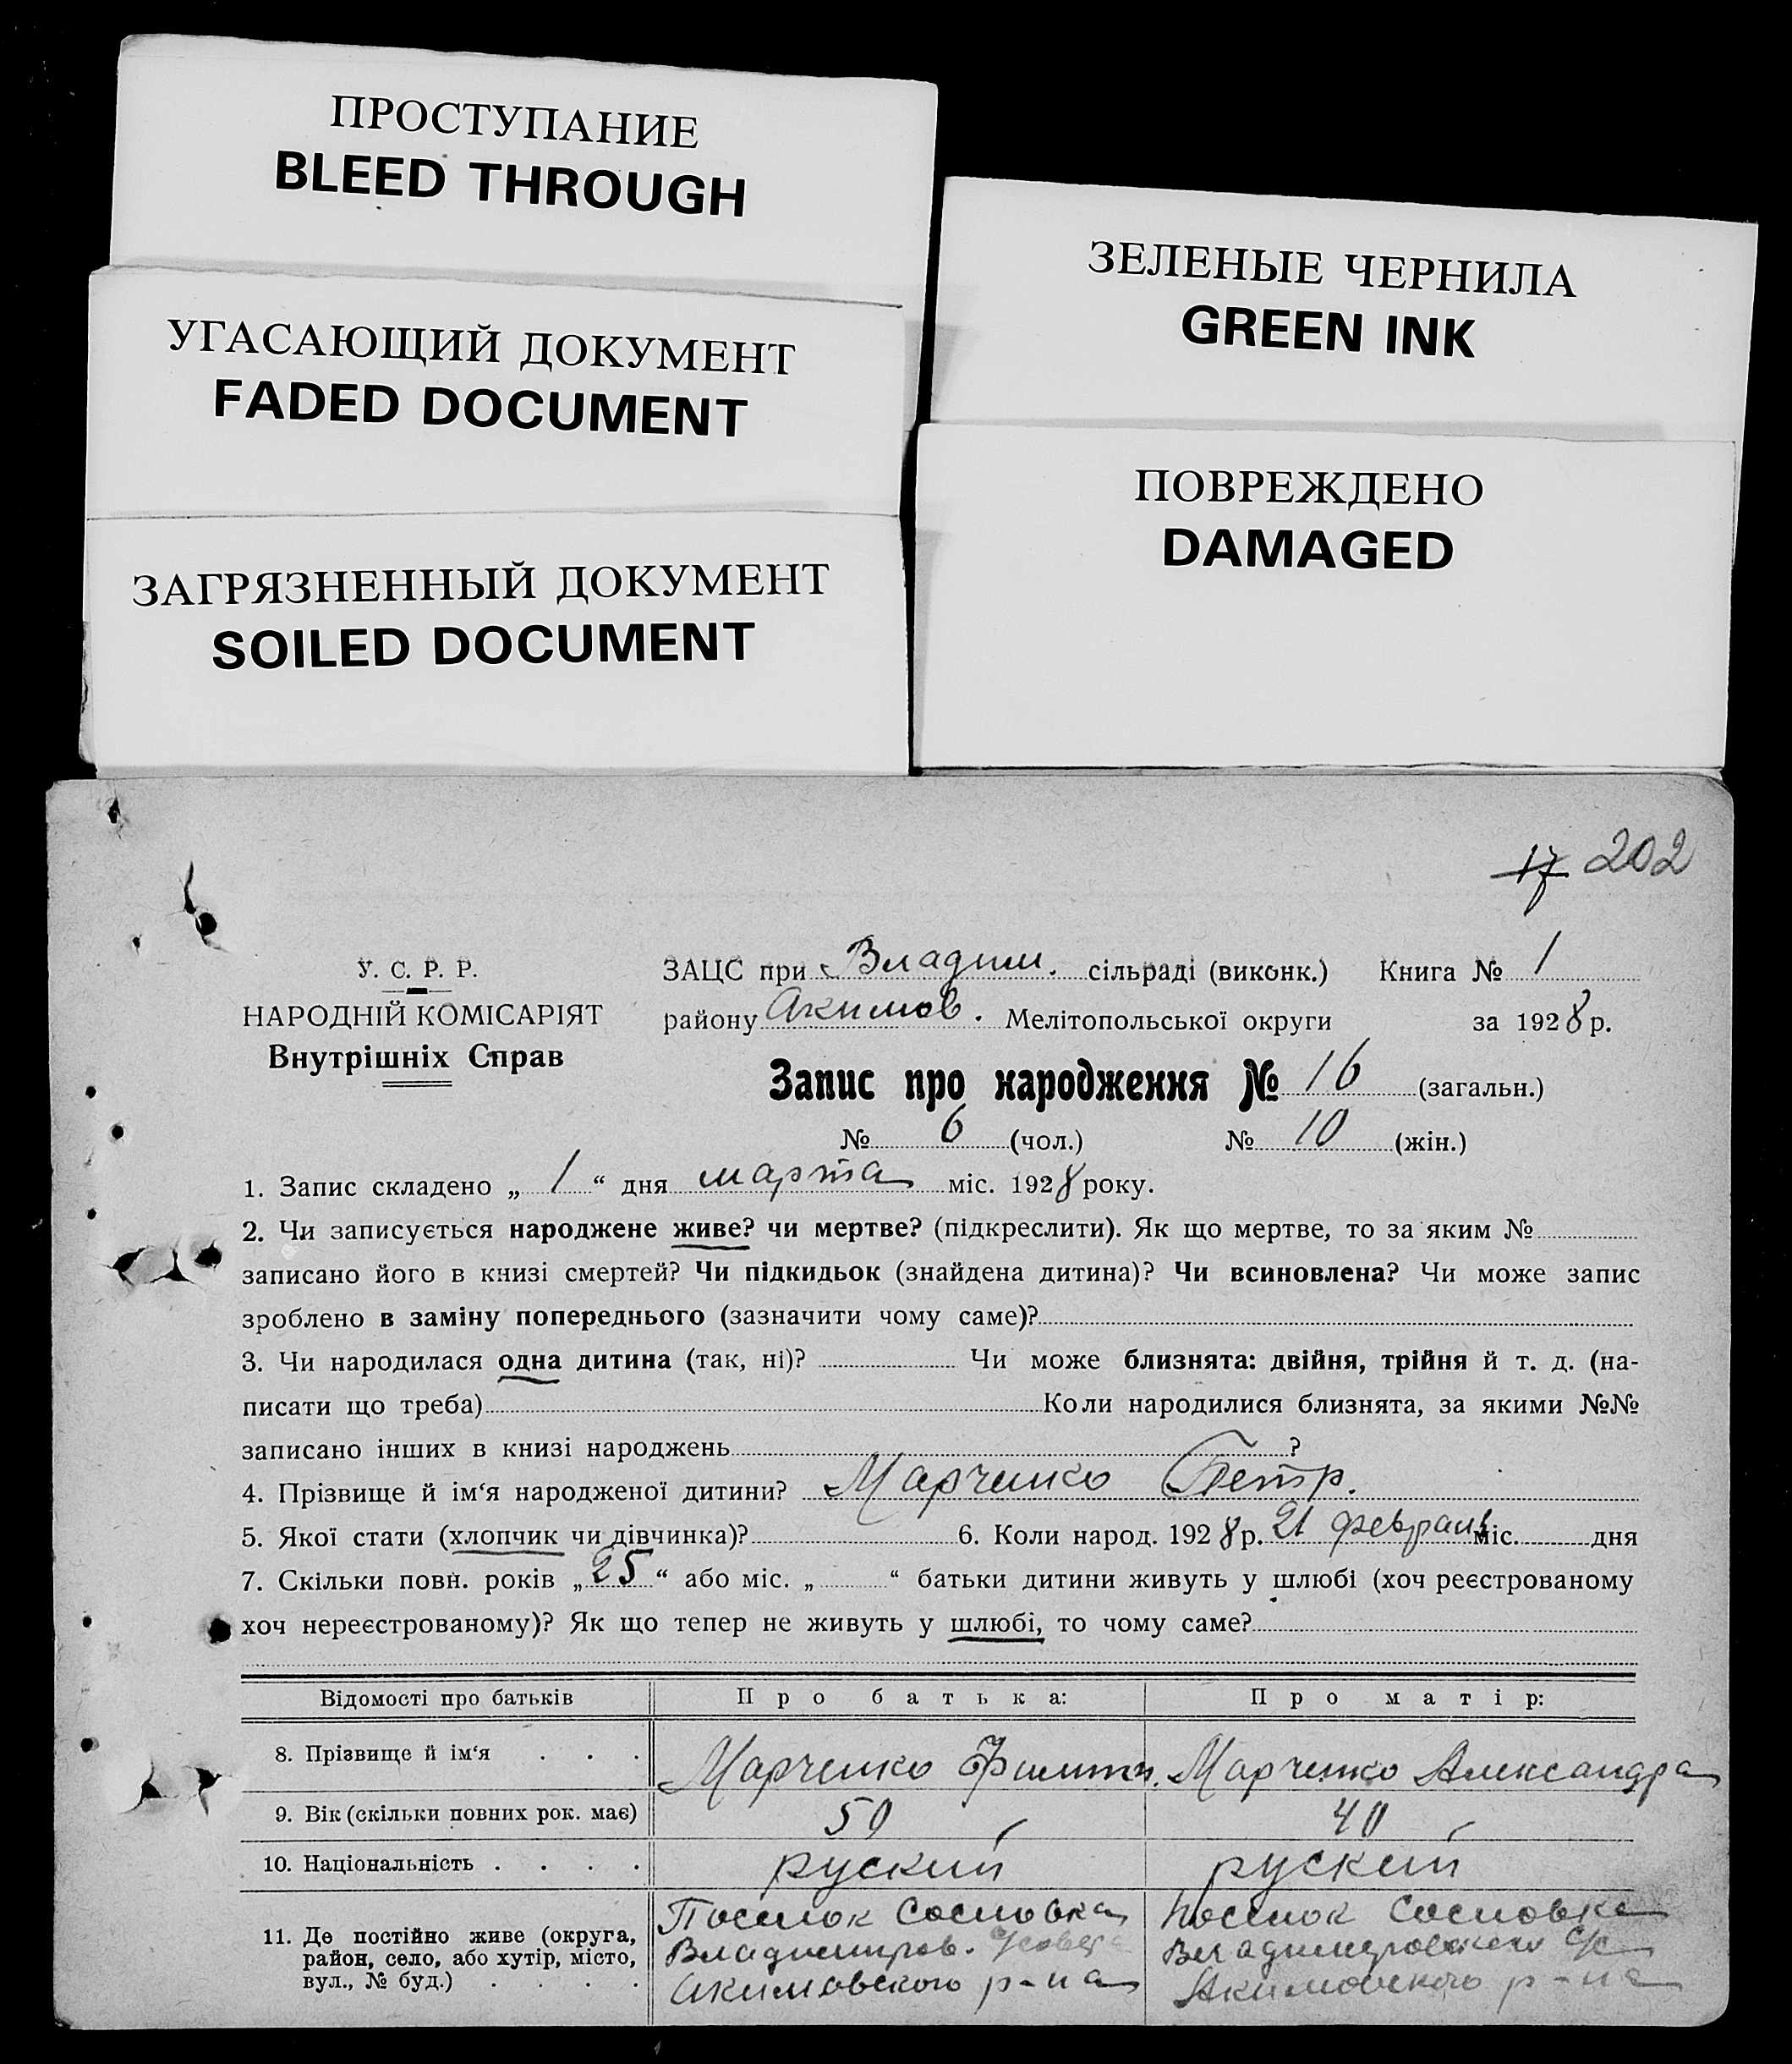 ПРОСТУПАНИЕ
BLEED THROUGH
УГАСАЮЩИЙ ДОКУМЕНТ
FADED DOCUMENT
ЗАГРЯЗНЕННЫЙ ДОКУМЕНТ
SOILED DOCUMENT
ЗЕЛЕНЫЕ ЧЕРНИЛА
GREEN INK
ПОВРЕЖДЕНО
DAMAGED
17 202
У. С. Р. Р.
НАРОДНІЙ КОМІСАРІЯТ
Внутрішніх Справ
ЗАЦС при Владим. сільраді (виконк.) Книга № 1
району Акимов. Мелітопольської округи за 1928 р.
Запис про народження № 16 (загальн.)
№ 6 (чол.) № 10 (жін.)
1. Запис складено „ 1 “ дня марта міс. 1928 року.
2. Чи записується народжене живе? чи мертве? (підкреслити). Як що мертве, то за яким №
записано його в книзі смертей? Чи підкидьок (знайдена дитина)? Чи всиновлена? Чи може запис
зроблено в заміну попереднього (зазначити чому саме)?
3. Чи народилася одна дитина (так, ні)? Чи може близнята: двійня, трійня й т. д. (на-
писати що треба) Коли народилися близнята, за якими №№
записано інших в книзі народжень ?
4. Прізвище й ім‘я народженої дитини? Марченко Петр.
5. Якої стати (хлопчик чи дівчинка)? 6. Коли народ. 1928 р. 21 февраля міс. дня
7. Скільки повн. років „ 25 “ або міс. „ “ батьки дитини живуть у шлюбі (хоч реєстрованому
хоч нереєстрованому)? Як що тепер не живуть у шлюбі, то чому саме?
Відомості про батьків Про батька: Про матір:
8. Прізвище й ім‘я . . . Марченко Филипп. Марченко Александра
9. Вік (скільки повних рок. має) 50 40
10. Національність . . . . руский руский
11. Де постійно живе (округа, район, село, або хутір, місто, вул., № буд.) . . . .
Поселок Сосновка
Владимиров. с/совета
Акимовского р-на
Поселок Сосновка
Владимировского с/с
Акимовского р-на